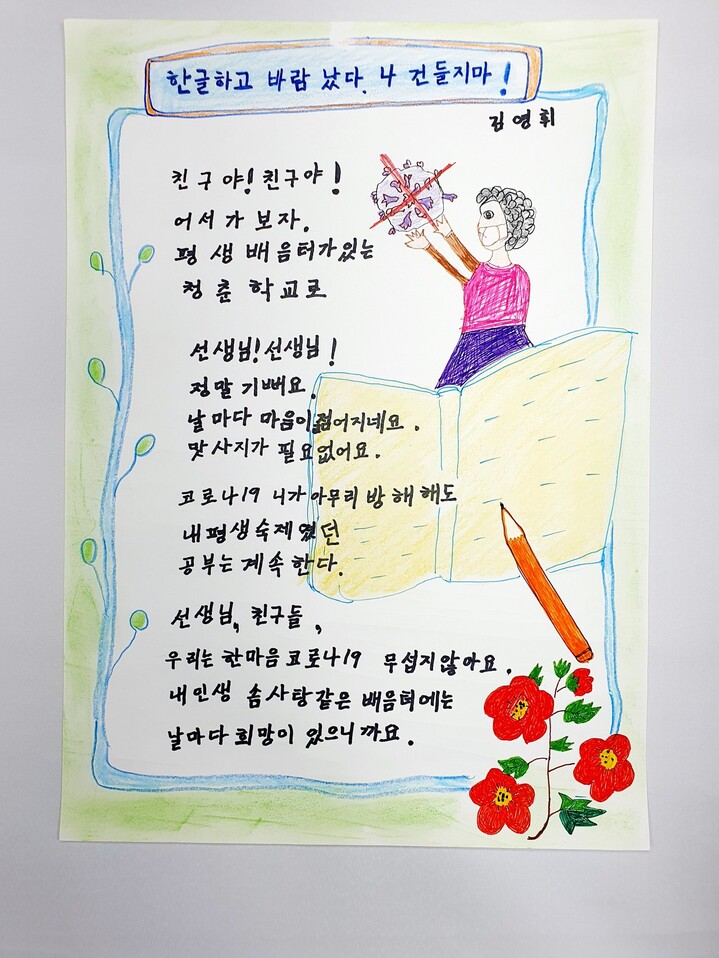 한글하고 바람 났다. 나 건들지마!
김영휘
친구야! 친구야!
어서 가 보자.
평생배음터가있는
청춘학교로
선생님! 선생님!
정말 기뻐요.
날마다 마음이 젊어지네요.
맛사지가 필요없어요.
코로나19 니가 아무리 방해해도
내평생숙제였던
공부는 계속한다.
선생님, 친구들,
우리는 한마음 코로나19 무섭지않아요.
내인생 솜사탕같은 배음터에는
날마다 희망이 있으니까요.